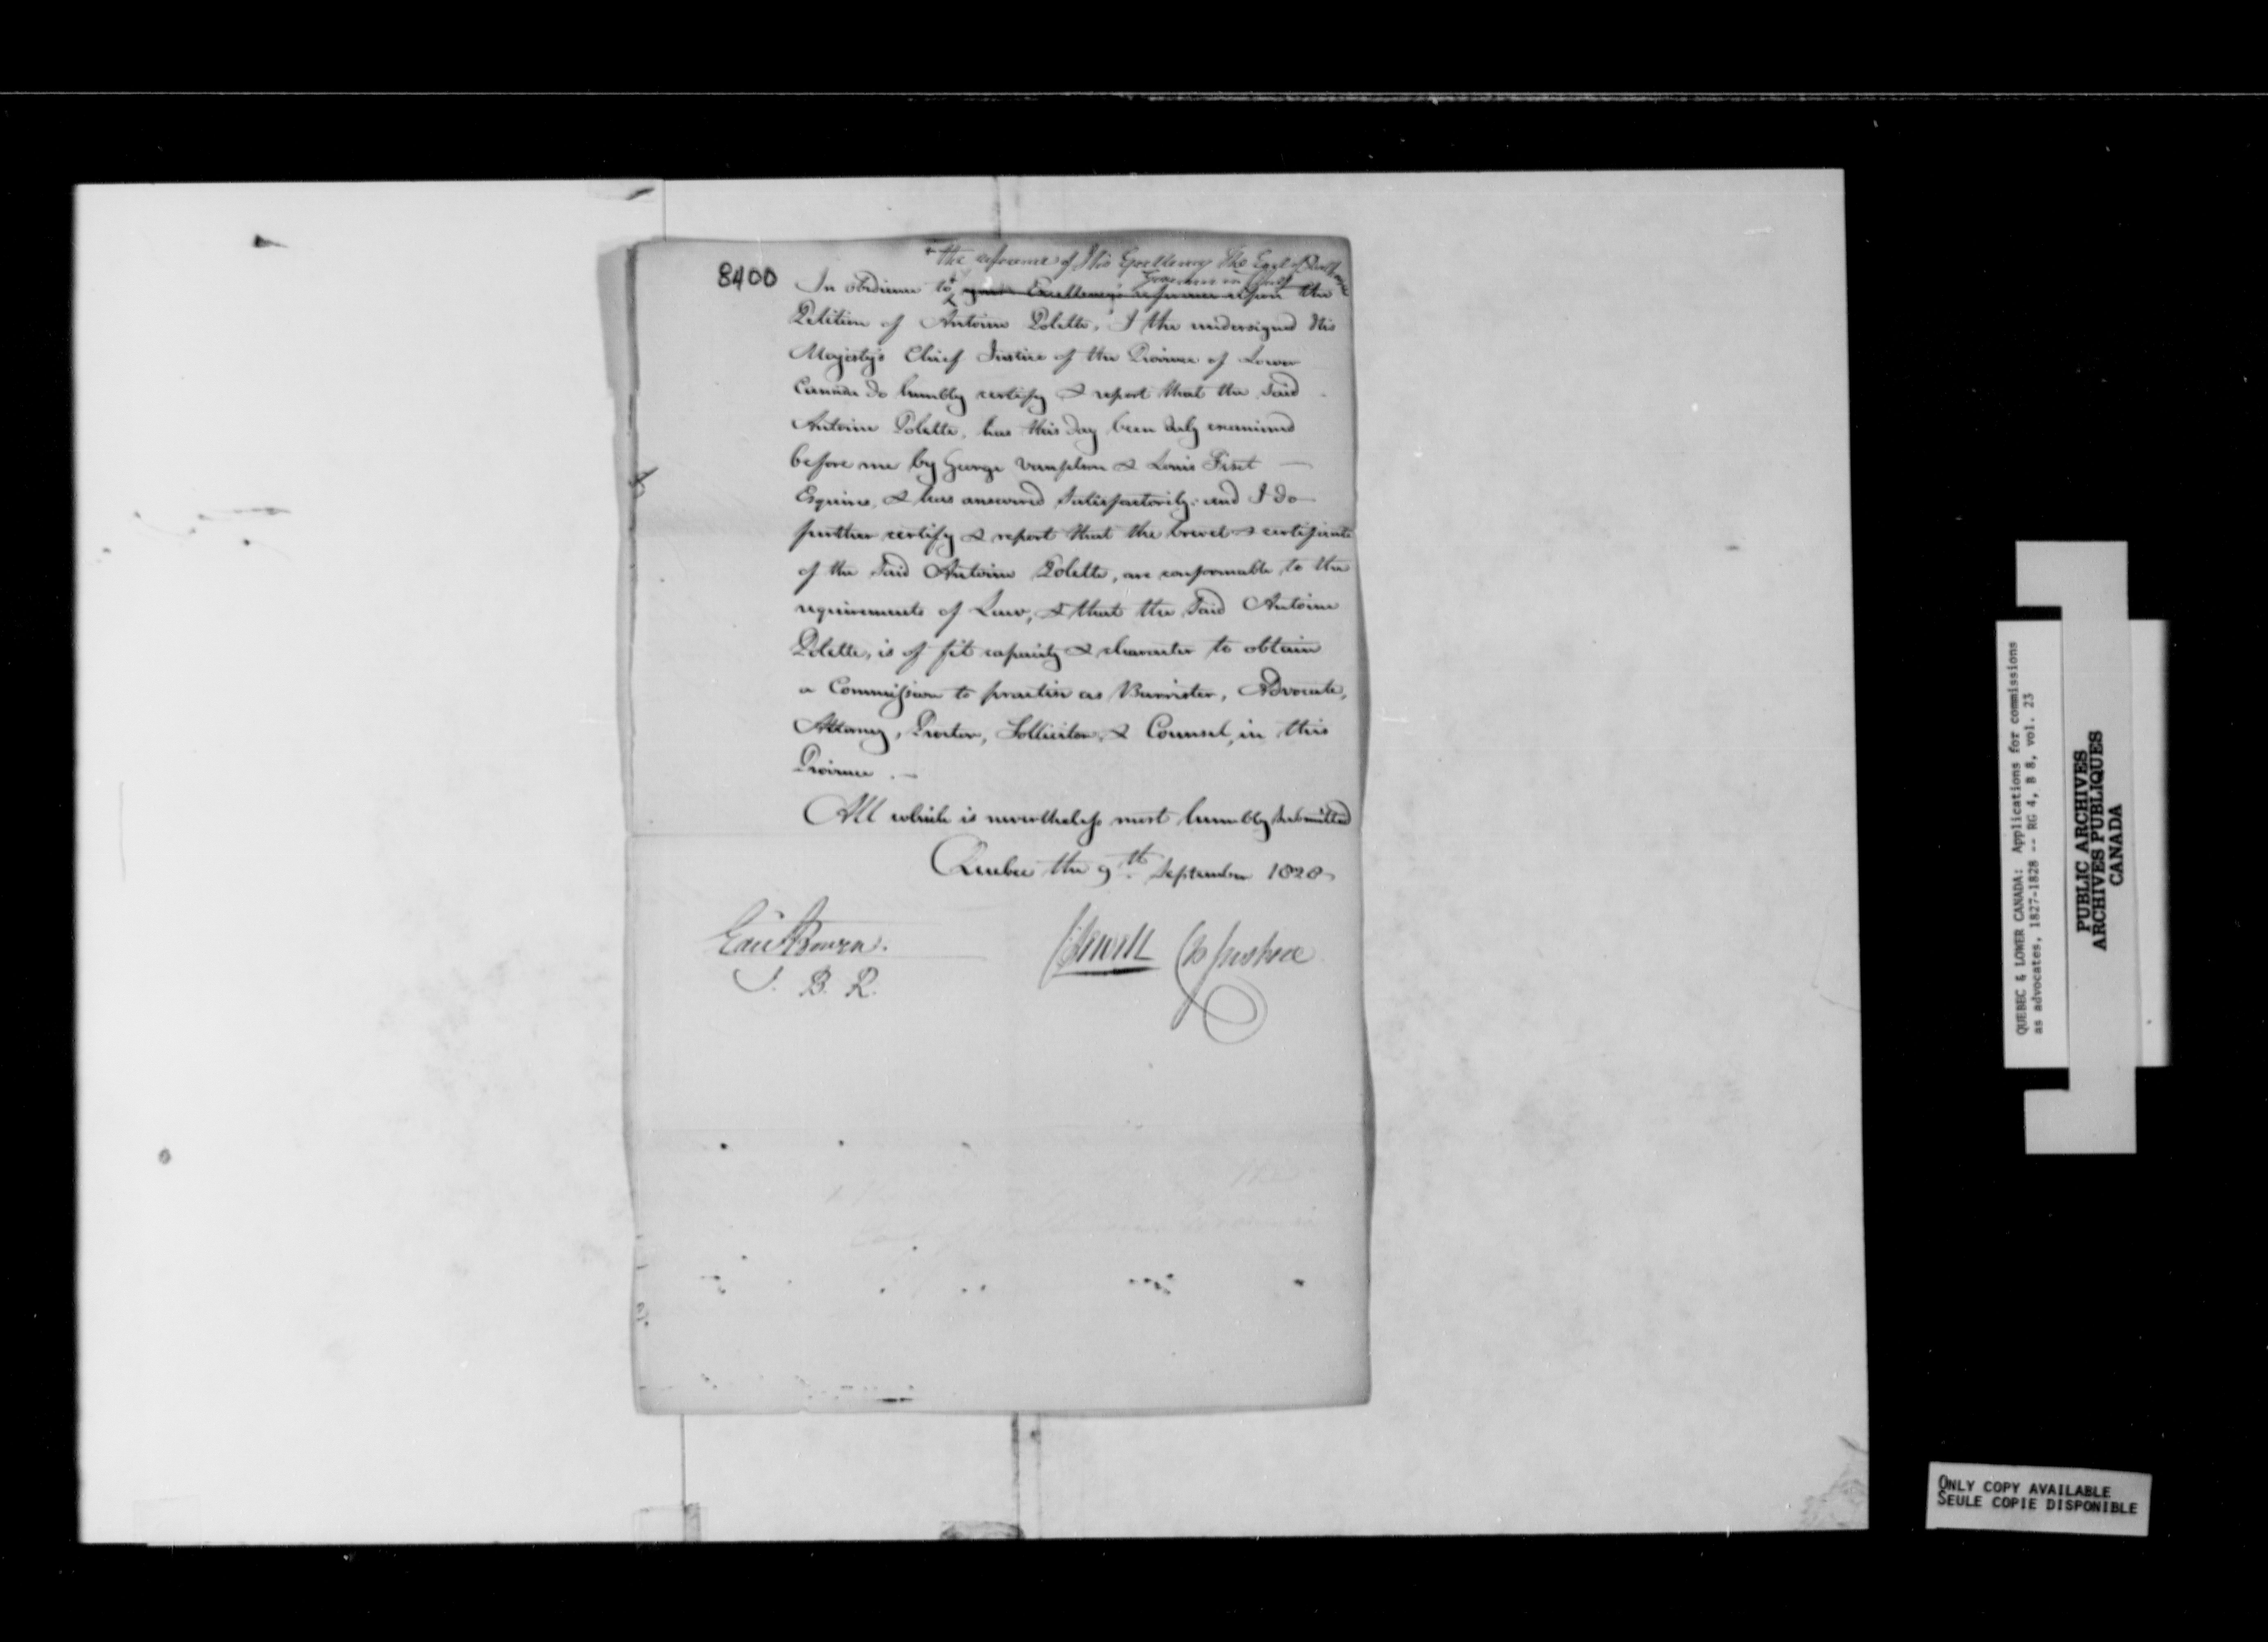 + the reference of His Excellency The Earl of Dalhousie
Governor in Chief
8400
In obedience to + your Excellency's reference upon the
Petition of Antoine Polette, I the undersigned His
Majesty's Chief Justice of the Province of Lower
Canada do humbly certify & report that the said
Antoine Polette, has this day been duly examined
before me by George Vanfelson & Louis Fiset —
Esquires, & has answered satisfactorily: and I do
further certify & report that the brevet & certificate
of the said Antoine Polette, are conformable to the
requirements of Law, & that the said Antoine
Polette, is of fit capacity & character to obtain
a Commission to practise as Barrister, Advocate,
Attorney, Proctor, Sollicitor, & Counsel, in this
Province . —
All which is nevertheless most humbly submitted
Quebec the 9th September 1828
Edw Bowen.
J. B. R.
J Sewell Ch Justice
QUEBEC & LOWER CANADA: Applications for commissions
as advocates, 1827-1828 -- RG 4, B 8, vol. 23
PUBLIC ARCHIVES
ARCHIVES PUBLIQUES
CANADA
ONLY COPY AVAILABLE
SEULE COPIE DISPONIBLE